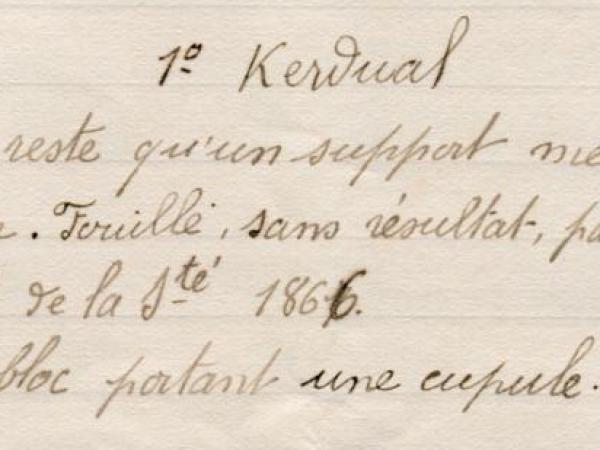 1º Kerdual
reste qu'un support me
. Fouillé, sans résultat, pa
de la Sté 1866.
bloc portant une cupule.